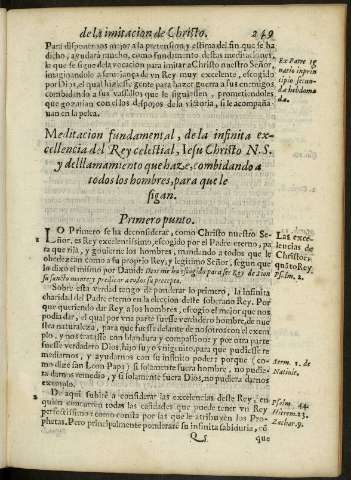 de la imitacion de Christo. 249
Para disponernos mejor a la pretension y estima del fin que se ha
dicho, ayudará mucho, como fundamento destas meditaciones,
le que se sigue de la vocacion para imitar a Christo nuestro Señor,
imaginandolo a semejança de vn Rey muy excelente, escogido
por Dios, el qual haziesse gente para hazer guerra a sus enemigos,
combidando a sus vassallos que le siguiessen, prometiendoles
que gozarian con el los despojos de la victoria, si le acompaña
uan en la pelea.
Ex Parte ig
natio in prin
cipio secun-
da hebdoma
da.
Meditacion fundamental, de la infinita ex-
cellencia del Rey celestial, Iesu Christo N.S.
y del llamamiento que haze, combidando a
todos los hombres, para que le
sigan.
Primero punto.
LO Primero se ha de considerar, como Christo nuestro Se-
ñor, es Rey excelentissimo, escogido por el Padre eterno, pa
ra que rija, y gouierne los hombres, mandando a todos que le
obedezcan como a su proprio Rey, y legitimo Señor, segun que
lo dixo el mismo por Dauid: Dios me ha escogido para ser Rey de Sion
su sancto monte, y predicar a todos su precepto.
Las exce-
lencias de
Christo
Rey.
Psalm. 2.
Sobre esta verdad tengo de ponderar lo primero, la infinita
charidad del Padre eterno en la eleccion deste soberano Rey. Por
que queriendo dar Rey a los hombres, escogio el mejor que nos
podia dar, el qual por vna parte fuesse verdadero hombre, de nue
stra naturaleza, para que fuesse delante de nosotros con el exem
plo, y nos tratasse con blandura y compassion: y por otra parte
fuesse verdadero Dios, hijo suyo vnigenito, para que pudiesse re
mediarnos, y ayudarnos con su infinito poder: porque (co-
mo dize san Leon Papa) si solamente fuera hombre, no pudie-
ra darnos remedio, y si solamente fuera Dios, no pudiera darnos
exemplo.
Serm. 1. de
Natiuit.
De aqui subirè a considerar las excelencias deste Rey, en
quien concurren todas las calidades que puede tener vn Rey
perfectissimo: como consta por las que le atribuyen los Pro-
phetas. Pero principalmente ponderarè su infinita sabiduria, cõ
Psalm. 44.
Hierem. 23.
Zachar. 9.
que